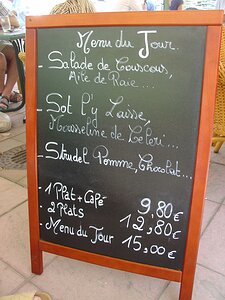 Menu du Jour.
- Salade de Couscous,
Aile de Raie....
- Sot l'y Laisse,
Mousseline de Celeri...
- Strudel Pomme, Chocolat...
- 1 Plat + Café 9,80€
- 2 Plats 12,80€
- Menu du Jour 15,00€